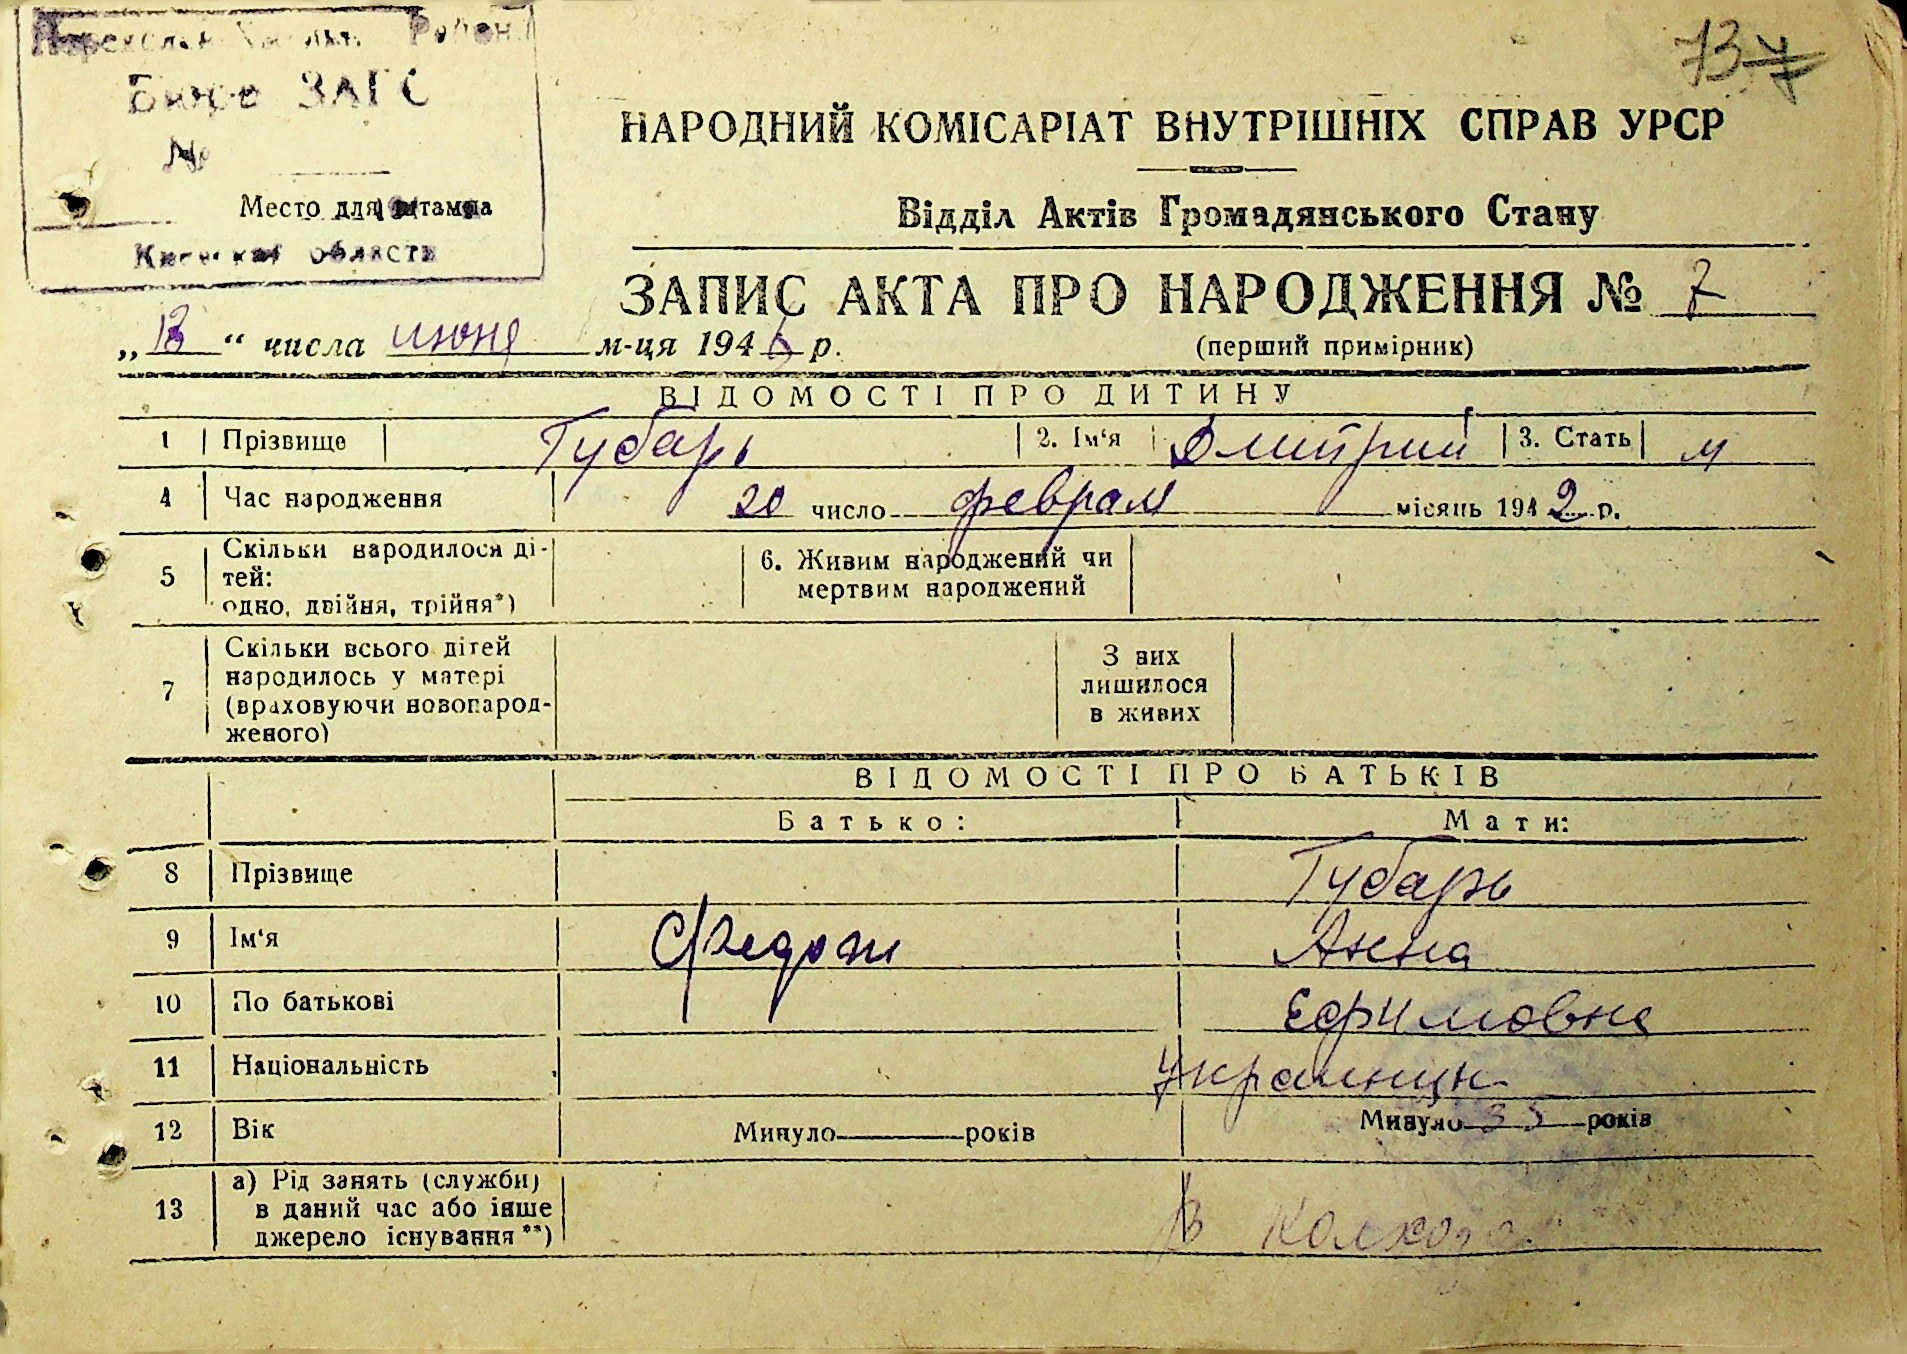 Район
Бюро ЗАГС
№
Место для штампа
Киевская области
137
НАРОДНИЙ КОМІСАРІАТ ВНУТРІШНІХ СПРАВ УРСР
Відділ Актів Громадянського Стану
ЗАПИС АКТА ПРО НАРОДЖЕННЯ № 7
„13“ числа июня м-ця 194 р.
(перший примірник)
ВІДОМОСТІ ПРО ДИТИНУ
1 Прізвище Губарь 2. Ім‘я Дмитрий 3. Стать м
4 Час народження 20 число феврал місяць 1942 р.
5 Скільки народилося ді-
тей:
одно, двійня, трійня*)
6. Живим народжений чи
мертвим народжений
7 Скільки всього дітей
народилось у матері
(враховуючи новонарод-
женого)
З них
лишилося
в живих
ВІДОМОСТІ ПРО БАТЬКІВ
Батько: Мати:
8 Прізвище Губарь
9 Ім‘я Анна
10 По батькові Ефимовна
11 Національність украинцк
12 Вік Минуло років Минуло 35 років
13 а) Рід занять (служби)
в даний час або інше
джерело існування**)
В колхозе